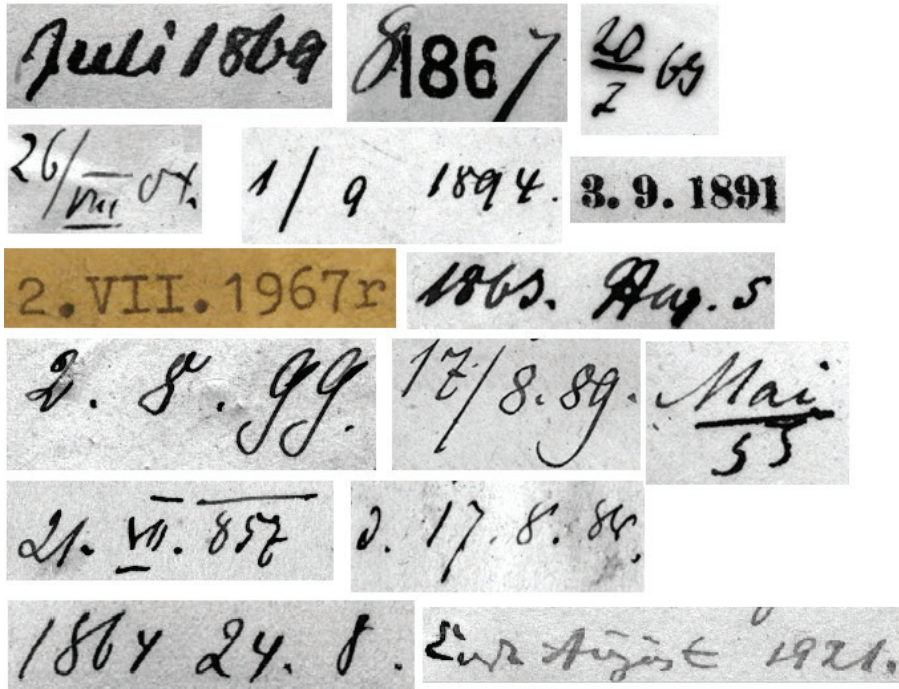 Juli 1869
8 1867
20/7 69
26/VIII 04.
1/9 1894.
3. 9. 1891
2.VII.1967r
1863. Aug. 5
2. 8. 99.
17/8.89.
Mai 55
21. VII. 857
d. 17. 8. 88.
1864 24. 8.
Ende August 1921.